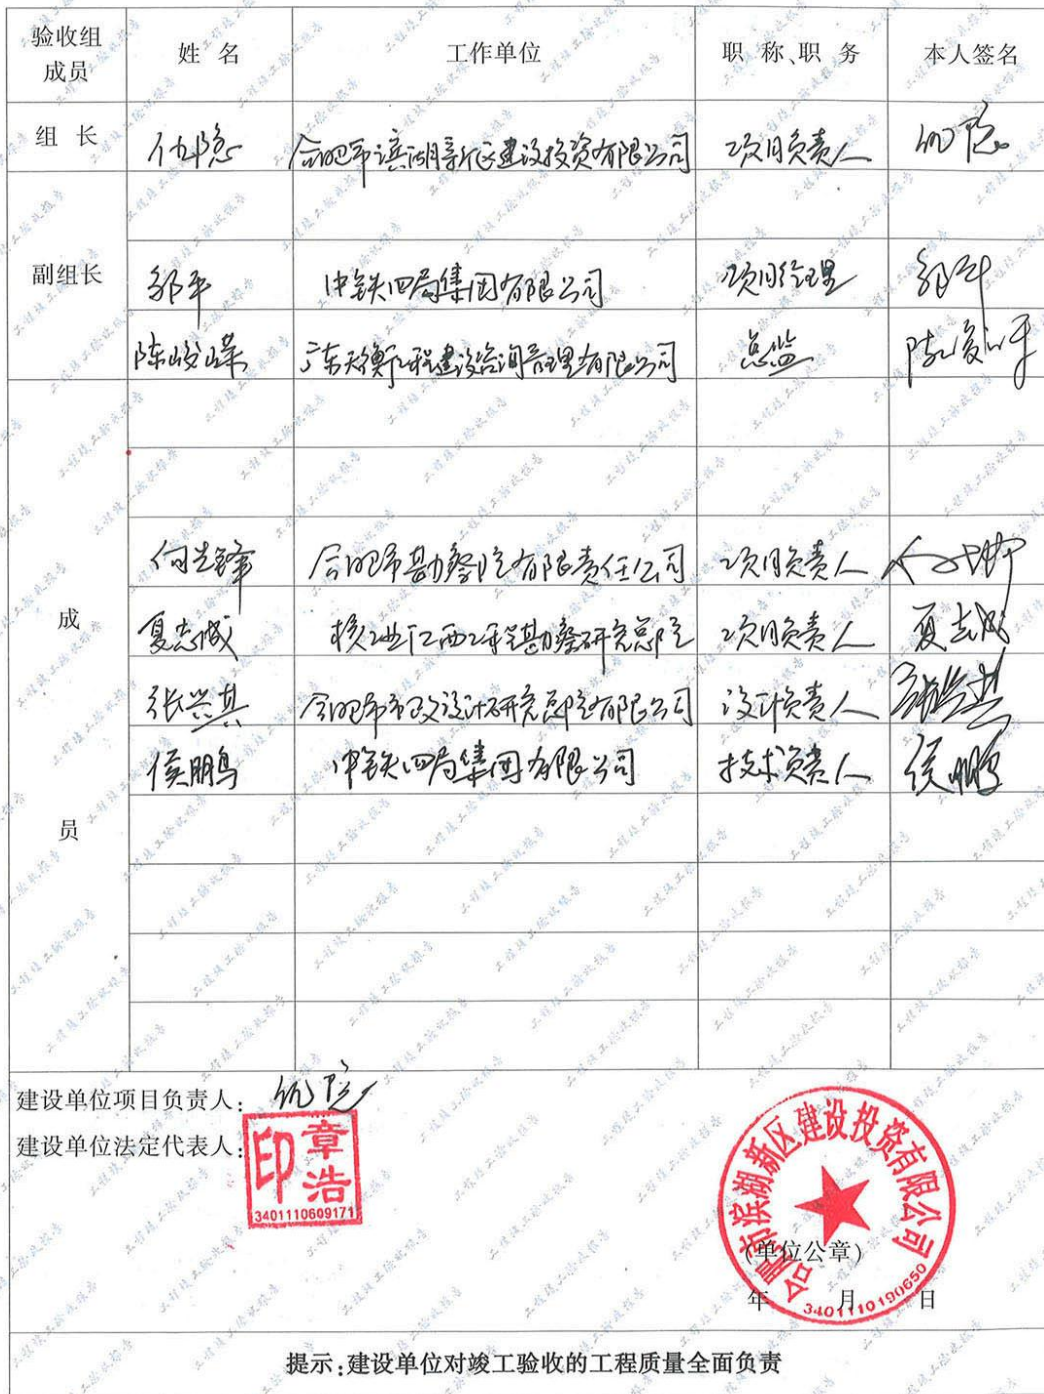 验收组成员 姓 名 工作单位 职 称、职 务 本人签名
组 长 仇隐 合肥市滨湖新区建设投资有限公司 项目负责人 仇隐
副组长 邹平 中铁四局集团有限公司 项目经理 邹平
陈峻嵘 广东天衡工程建设咨询管理有限公司 总监
成员
何先锋 合肥市勘察院有限责任公司 项目负责人
夏志成 核工业江西工程勘察研究总院 项目负责人 夏志成
张兴其 合肥市市政设计研究总院有限公司 设计负责人 张兴其
侯鹏鸟 中铁四局集团有限公司 技术负责人 侯鹏
建设单位项目负责人: 仇隐
建设单位法定代表人:
章浩印
3401110609171
合肥市滨湖新区建设投资有限公司
(单位公章)
年 月 日
3401110190650
提示:建设单位对竣工验收的工程质量全面负责
工程竣工验收报告